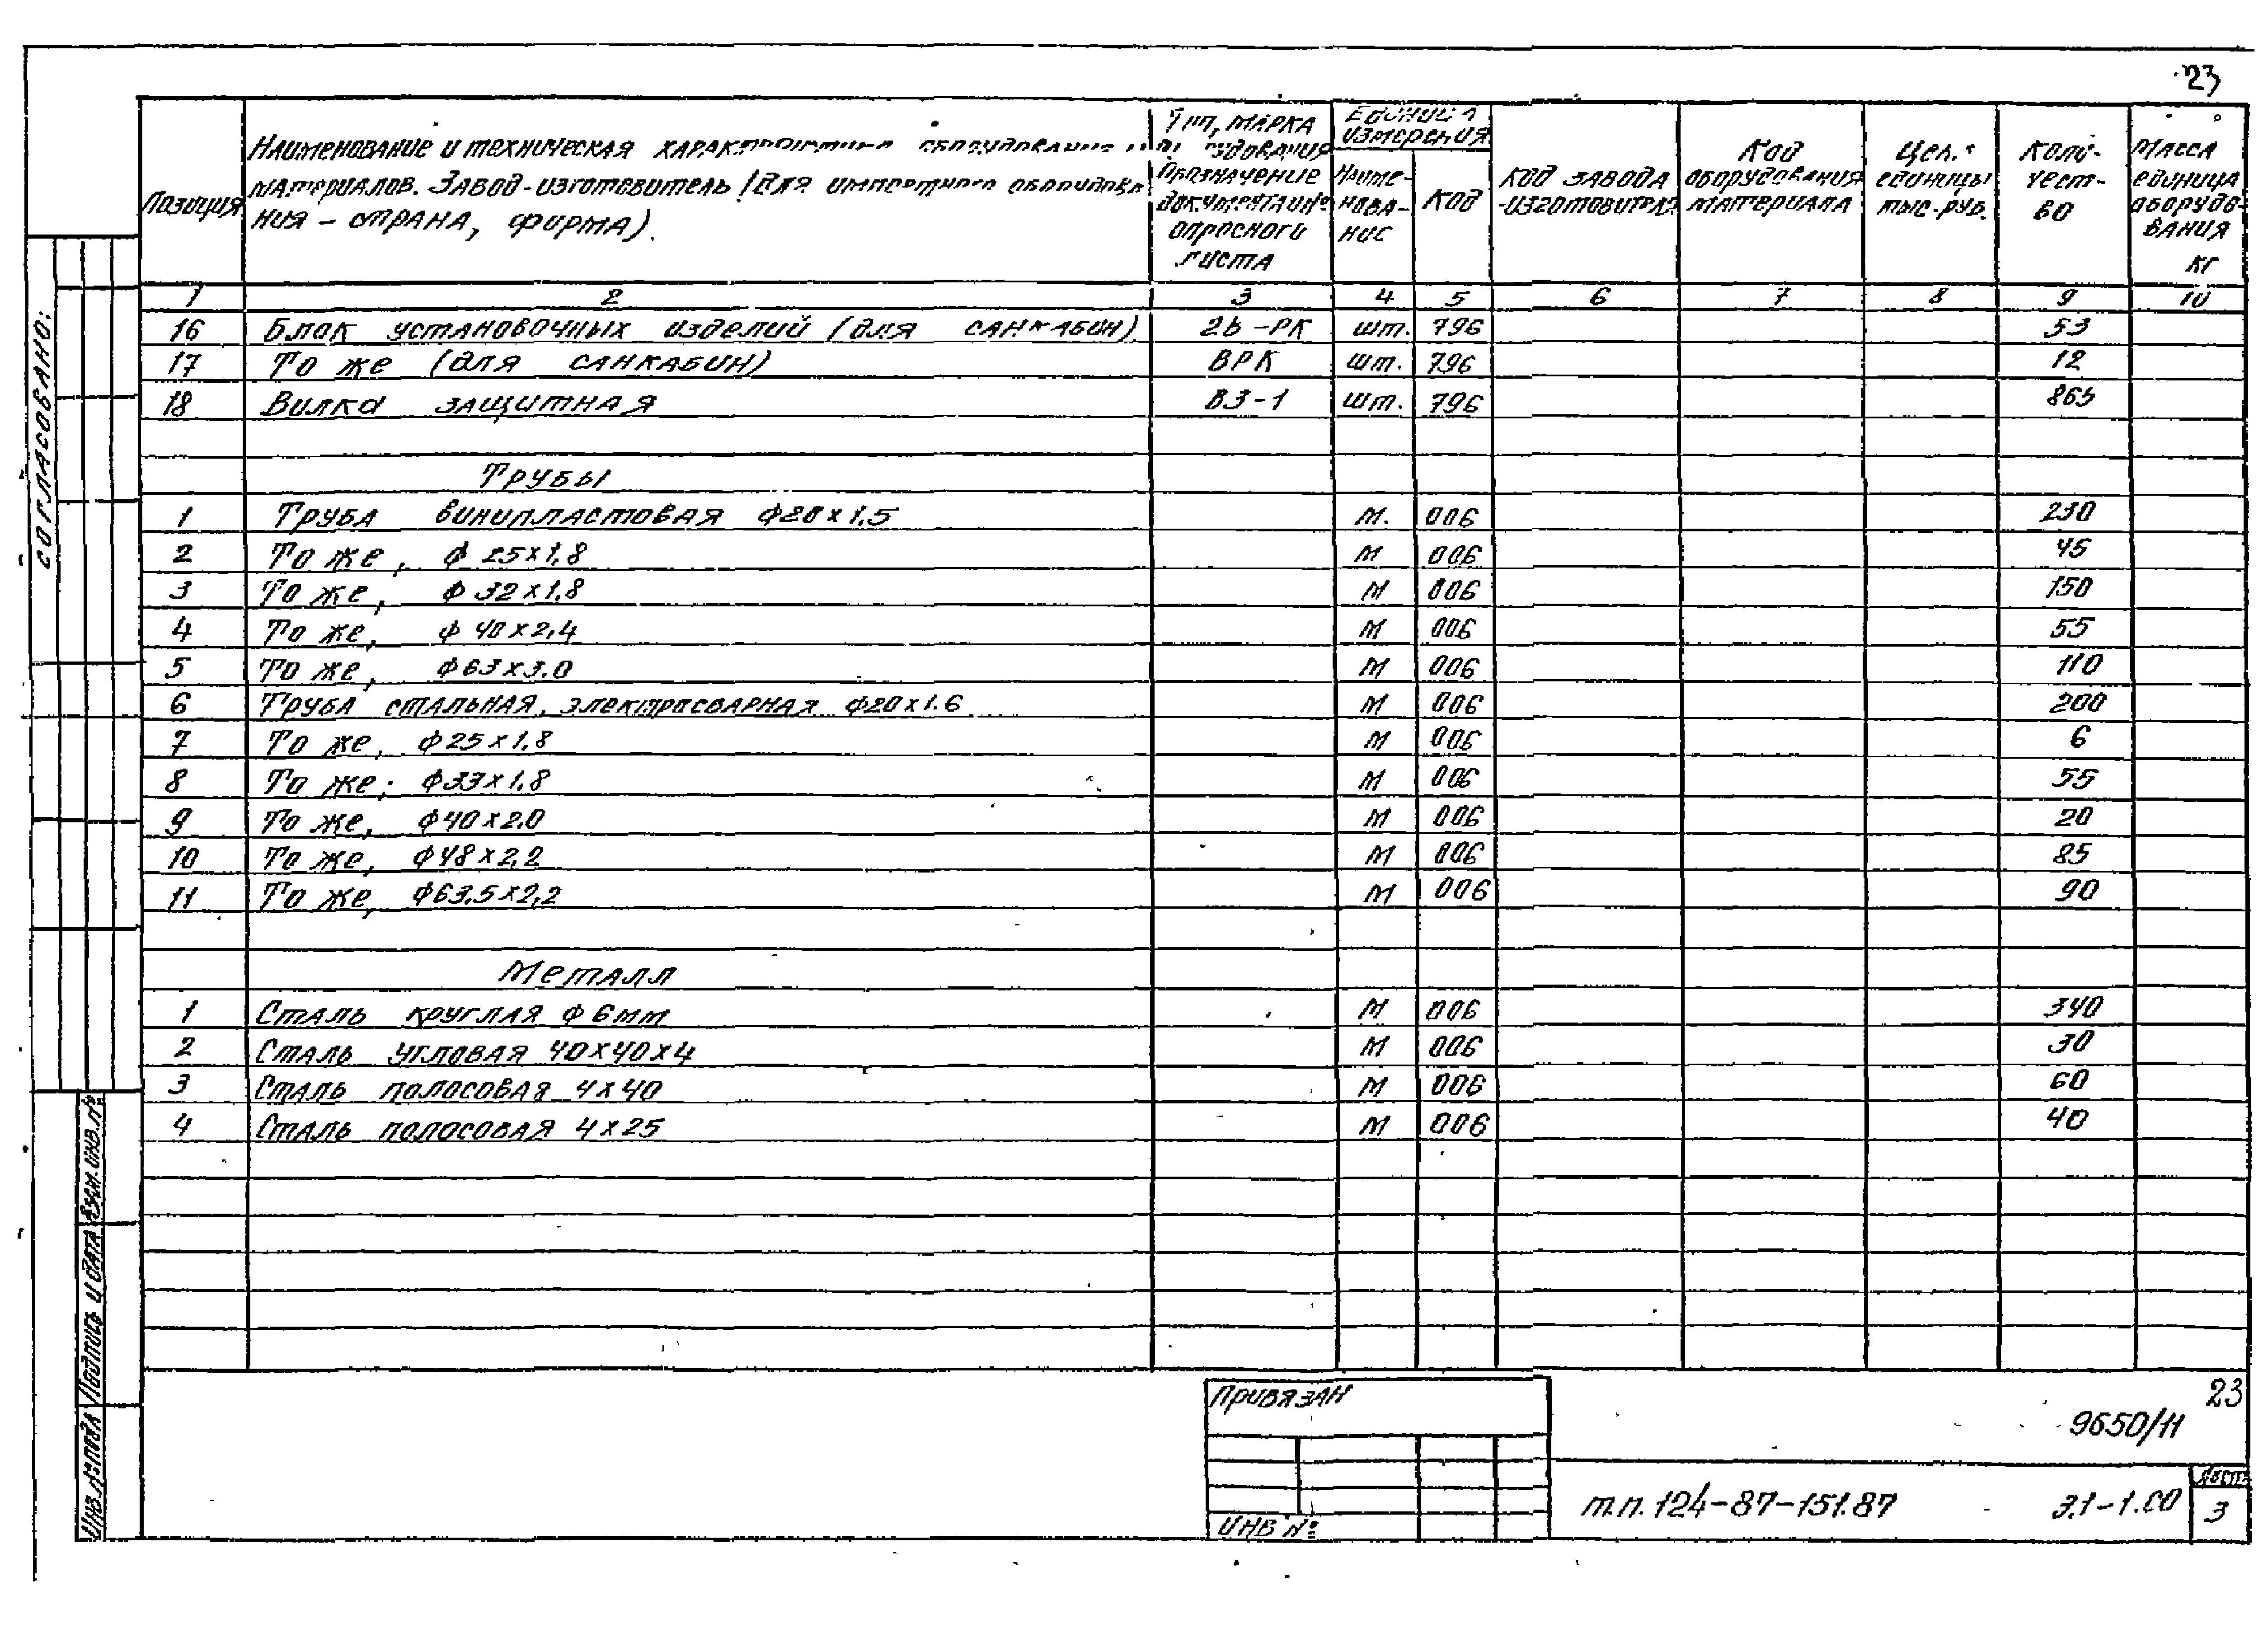 23
Позиция
Наименование и техническая характеристика оборудования и
материалов. Завод-изготовитель (для импортного оборудова
ния – страна, фирма).
Тип, марка
оборудования
Обозначение
документа и №
опросного
листа
Единица
измерения
Наиме-
нова-
ние
Код
Код завода
-изготовителя
Код
оборудования
материала
Цена
единицы
тыс. руб.
Коли-
чест-
во
Масса
единица
оборудо-
вания
кг
1 2 3 4 5 6 7 8 9 10
16 Блок установочных изделий (для санкабин) 2Б-РК шт. 796 53
17 То же (для санкабин) ВРК шт. 796 12
18 Вилка защитная ВЗ-1 шт. 796 865
Трубы
1 Труба винипластовая ф20х1.5 м. 006 230
2 То же, ф 25х1,8 м 006 45
3 То же, ф 32х1,8 м 006 150
4 То же, ф 40х2,4 м 006 55
5 То же, ф63х3.0 м 006 110
6 Труба стальная, электросварная ф20х1.6 м 006 200
7 То же, ф25х1,8 м 006 6
8 То же, ф33х1,8 м 006 55
9 То же, ф40х2.0 м 006 20
10 То же, ф48х2,2 м 006 85
11 То же, ф63,5х2,2 м 006 90
Металл
1 Сталь круглая ф 6мм м 006 340
2 Сталь угловая 40х40х4 м 006 30
3 Сталь полосовая 4х40 м 006 60
4 Сталь полосовая 4х25 м 006 40
Согласовано:
Взам. инв. №
Подпись и дата
Инв. № подл
Привязан
Инв №
23
9650/11
т.п. 124-87-151.87
Э.1-1.СО
Лист
3